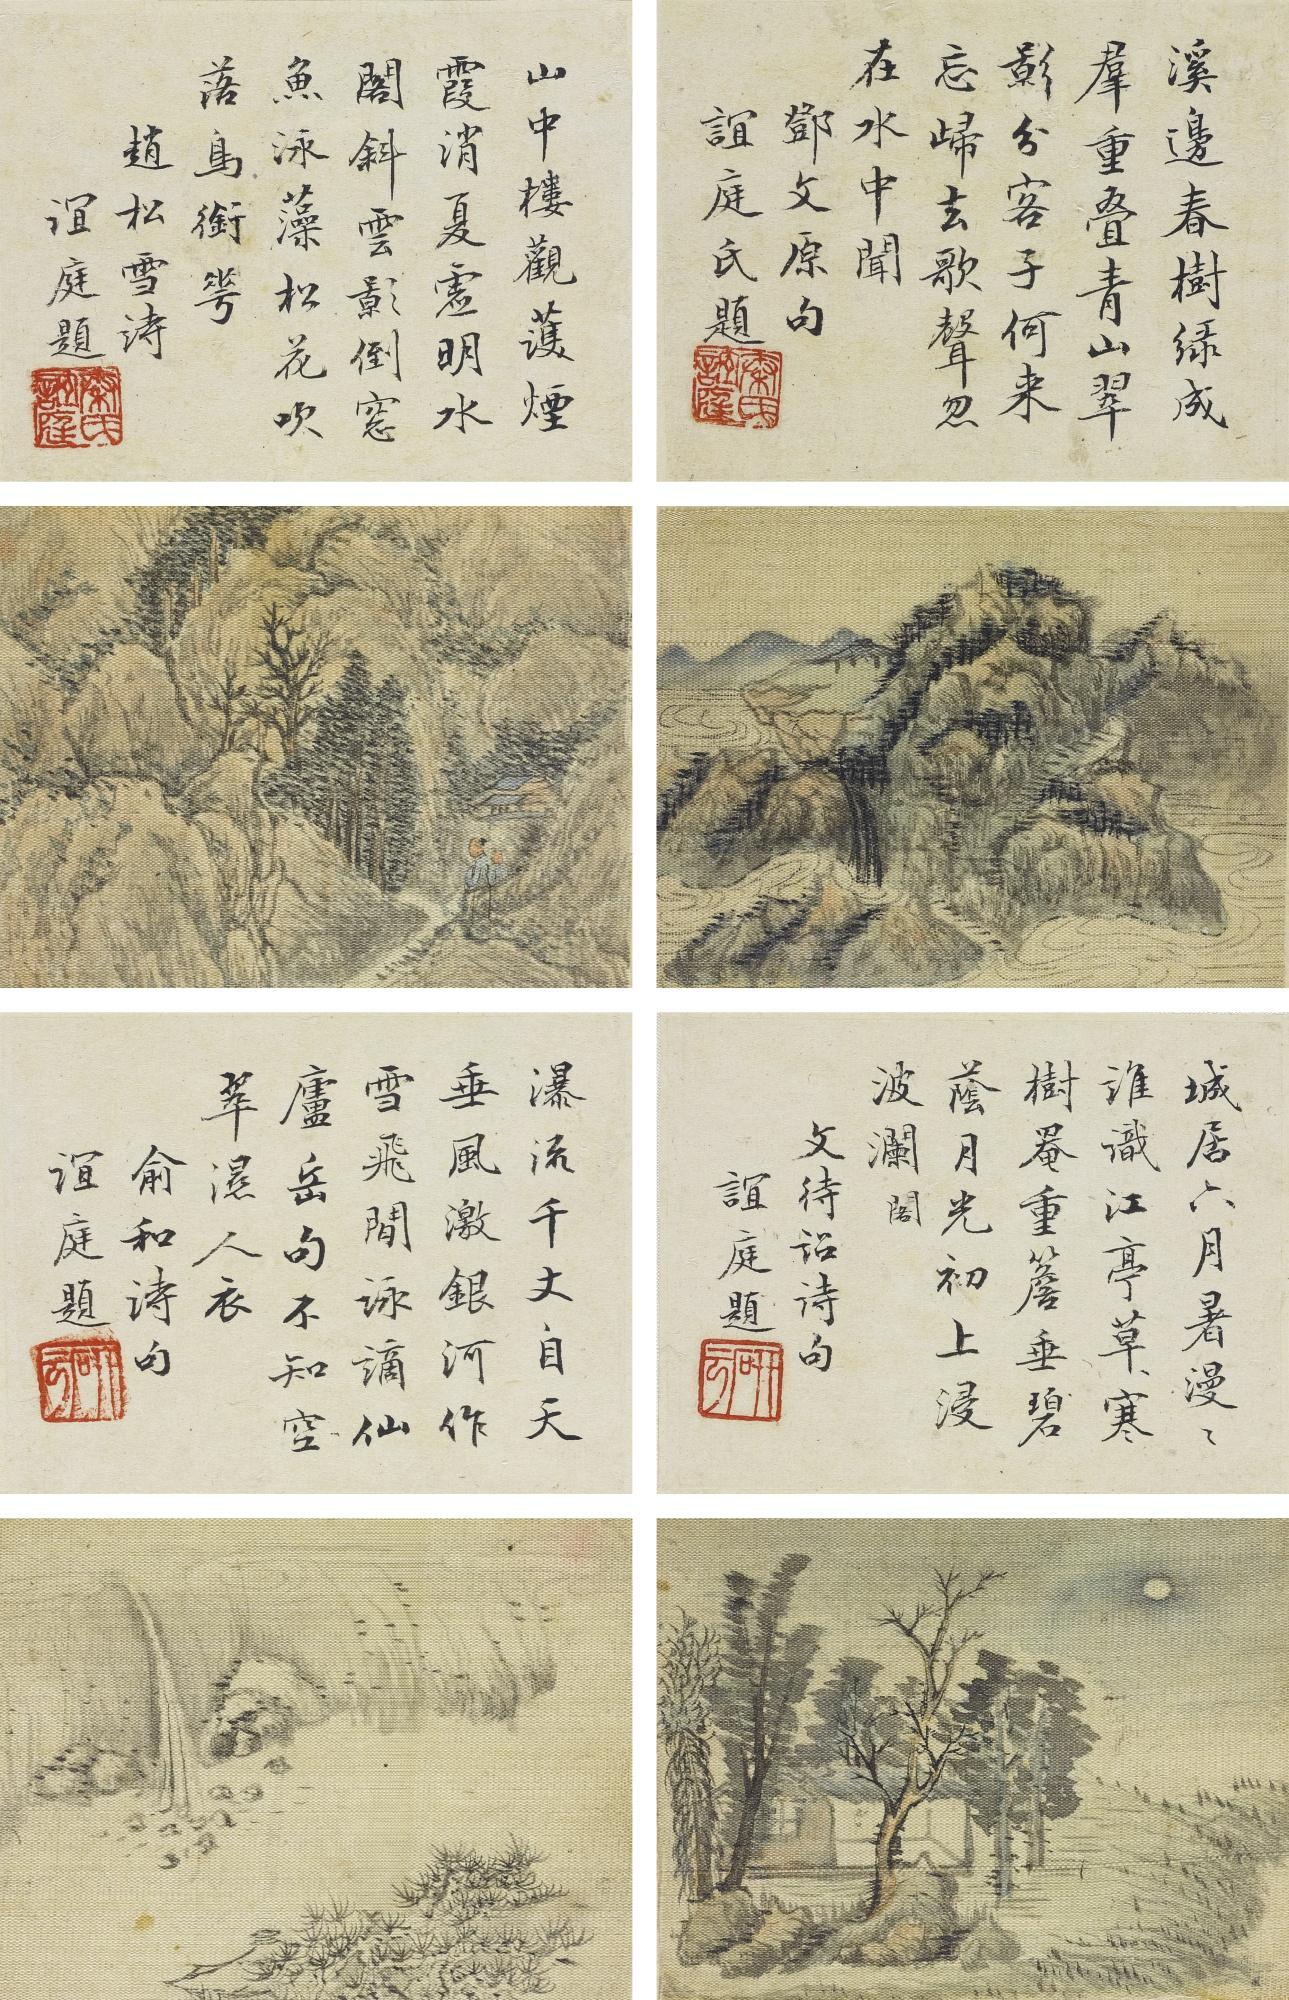 溪邊春樹緑成
羣重疊青山翠
影分客子何来
忘歸去歌聲忽
在水中聞
鄧文原句
誼庭氏題
秦氏
誼庭
山中樓觀護煙
霞消夏宸明水
閣斜雲影倒窓
魚泳藻松花吹
落鳥銜華
趙松雪詩
誼庭題
秦氏
誼庭
城居六月暑漫〻
誰識江亭草寒
樹罨重簷垂碧
蔭月光初上浸
波瀾閣
文待詔詩句
誼庭題
研云
瀑流千丈自天
垂風激銀河作
雪飛閒詠謫仙
廬岳句不知空
翠濕人衣
俞和詩句
誼庭題
研云